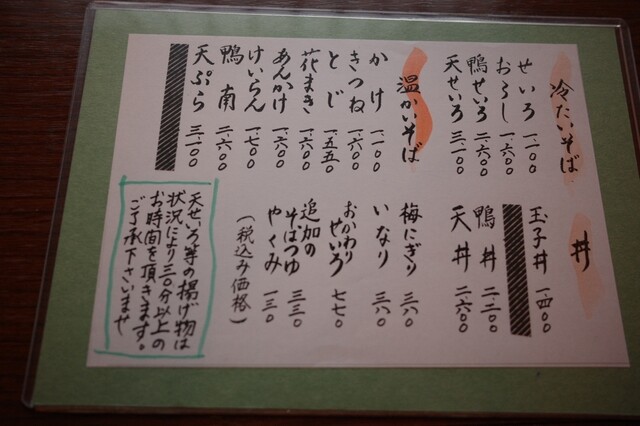 冷たいそば
せいろ 一、一〇〇
おろし 一、六〇〇
鴨せいろ 二、六〇〇
天せいろ 三、一〇〇
温かいそば
かけ 一、一〇〇
きつね 一、六〇〇
とじ 一、五五〇
花まき 一、六〇〇
あんかけ 一、六〇〇
けいらん 一、七〇〇
鴨南 二、六〇〇
天ぷら 三、一〇〇
丼
玉子丼 一、四〇〇
鴨丼 二、二〇〇
天丼 二、六〇〇
梅にぎり 三八〇
いなり 三八〇
おかわりせいろ 七七〇
追加の
そばつゆ 三三〇
やくみ 一三〇
(税込み価格)
天せいろ等の揚げ物は
状況により三〇分以上の
お時間を頂きます。
ご了承下さいませ